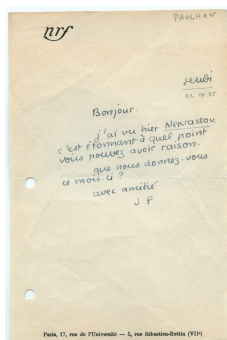 PAULHAN
nrf
jeudi
Bonjour.
j'ai vu hier Nekrassov.
c'est étonnant à quel point
vous pouvez avoir raison.
que nous donnez-vous
ce mois-ci ?
avec amitié
J P
Paris, 17, rue de l'Université — 5, rue Sébastien-Bottin (VIIe)